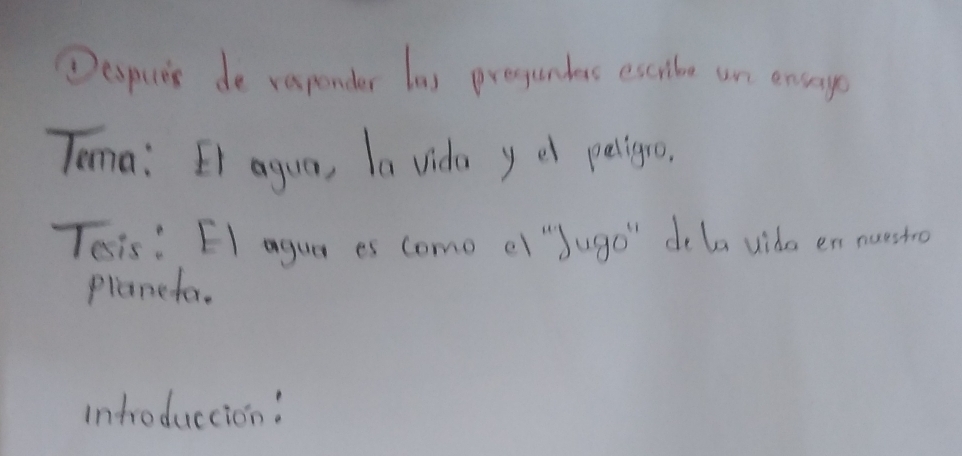 Después de responder las preguntas escribe un ensayo
Tema: El agua, la vida y el peligro.
Tesis: El agua es como el "Jugo" de la vida en nuestro
planeta.
introducción: